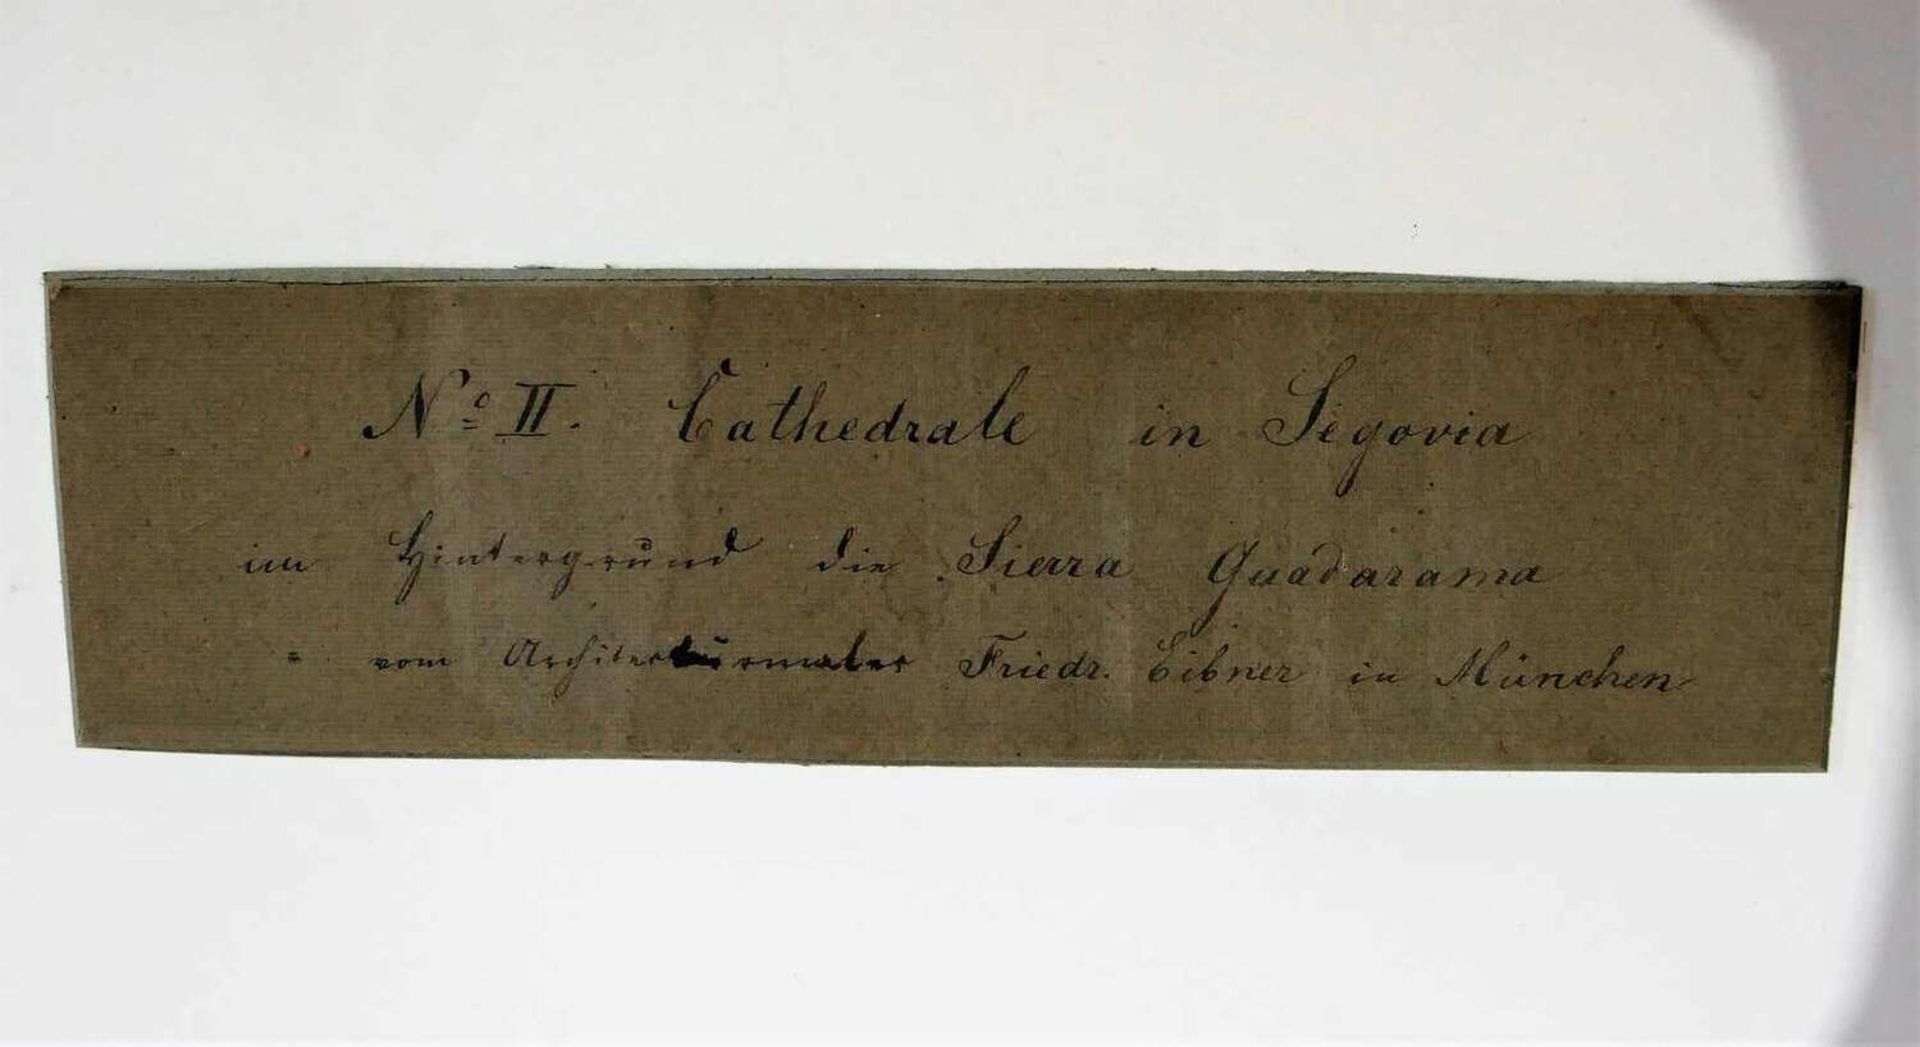 No II. Cathedrale in Segovia
im Hintergrund die Sierra Guadarama
" vom Architecturmaler Friedr. Eibner in München